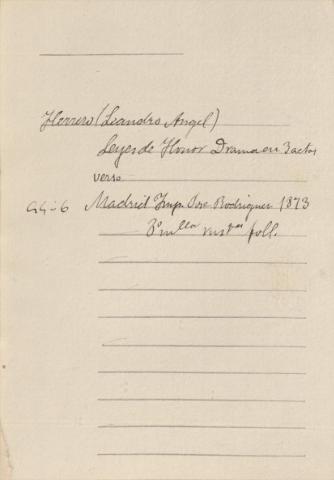 Herrero (Leandro Angel)
Leyes de Honor Drama en 3 actos
verso
Madrid Imp. José Rodriguez 1873
foll.